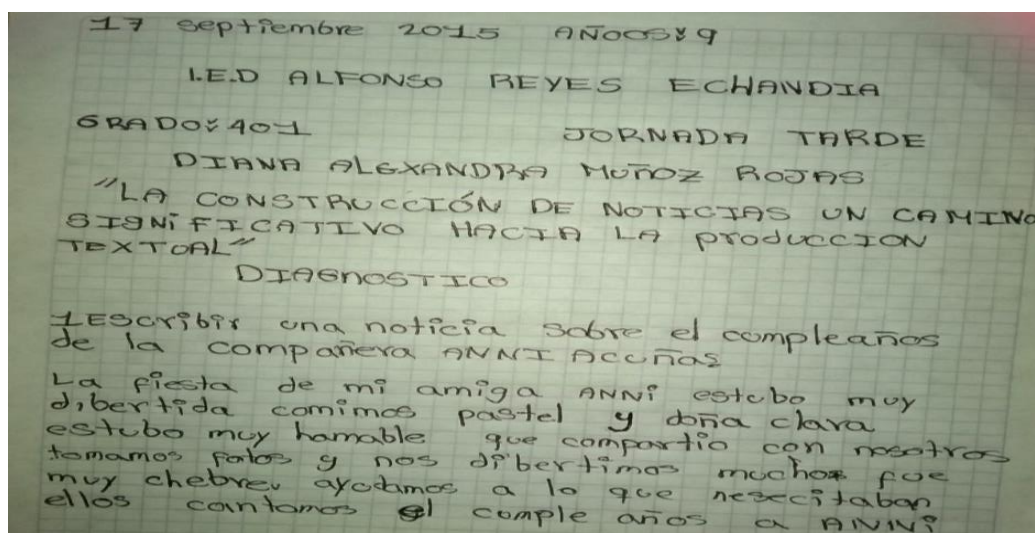 17 septiembre 2015 AÑOOS: 9
I.E.D ALFONSO REYES ECHANDIA
GRADO: 401 JORNADA TARDE
DIANA ALEXANDRA MUÑOZ ROJAS
"LA CONSTRUCCIÓN DE NOTICIAS UN CAMINO
SIGNIFICATIVO HACIA LA PRODUCCION
TEXTOAL"
DIAGNOSTICO
1Escribir una noticia sobre el compleaños
de la compañera ANNI Acuñas
La fiesta de mi amiga ANNi estubo muy
dibertida comimos pastel y doña clara
estubo muy hamable que compartio con nosotros
tomamos fotos y nos dibertimos mucho fue
muy chebre ayudamos a lo que nesecitaban
ellos cantamos el comple años a ANNi